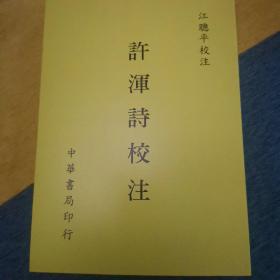 江聰平校注
許渾詩校注
中華書局印行